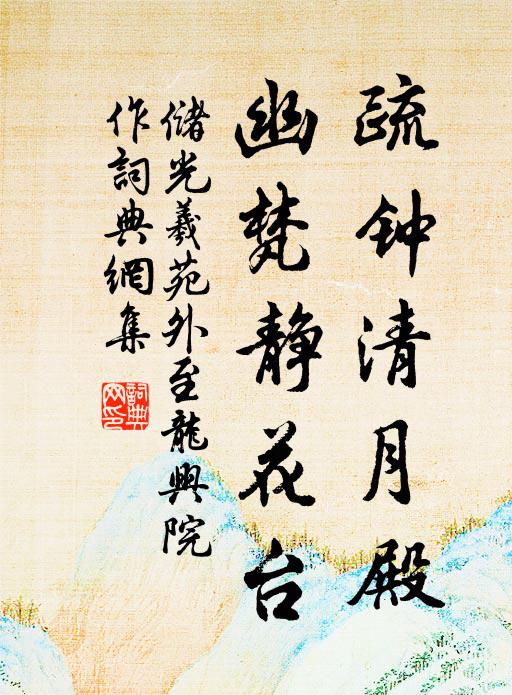 疏钟清月殿
幽梵静花台
储光羲苑外至龍興院
作詞典網集
詞典網印